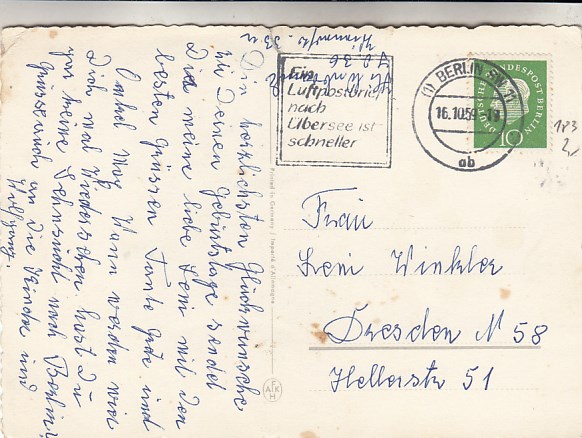 Die herzlichsten Glückwünsche
zu Deinem Geburtstage sendet
Dir meine liebe Leni mit den
besten Grüssen Tante Grete und
Onkel Max. Wann werden wir
Dich mal Wiedersehen hast Du
gar keine Sehnsucht nach Berlin?
Grüsse auch an die Kinder und
Wolfgang.
Ein
Luftpostbrief
nach
Übersee ist
schneller
(1) BERLIN SW 11
16.10.59
ab
DEUTSCHE BUNDESPOST BERLIN
10
Printed in Germany / Imprimé d'Allemagne
AFKH
Frau
Leni Winkler
Dresden N 58
Hellerstr 51